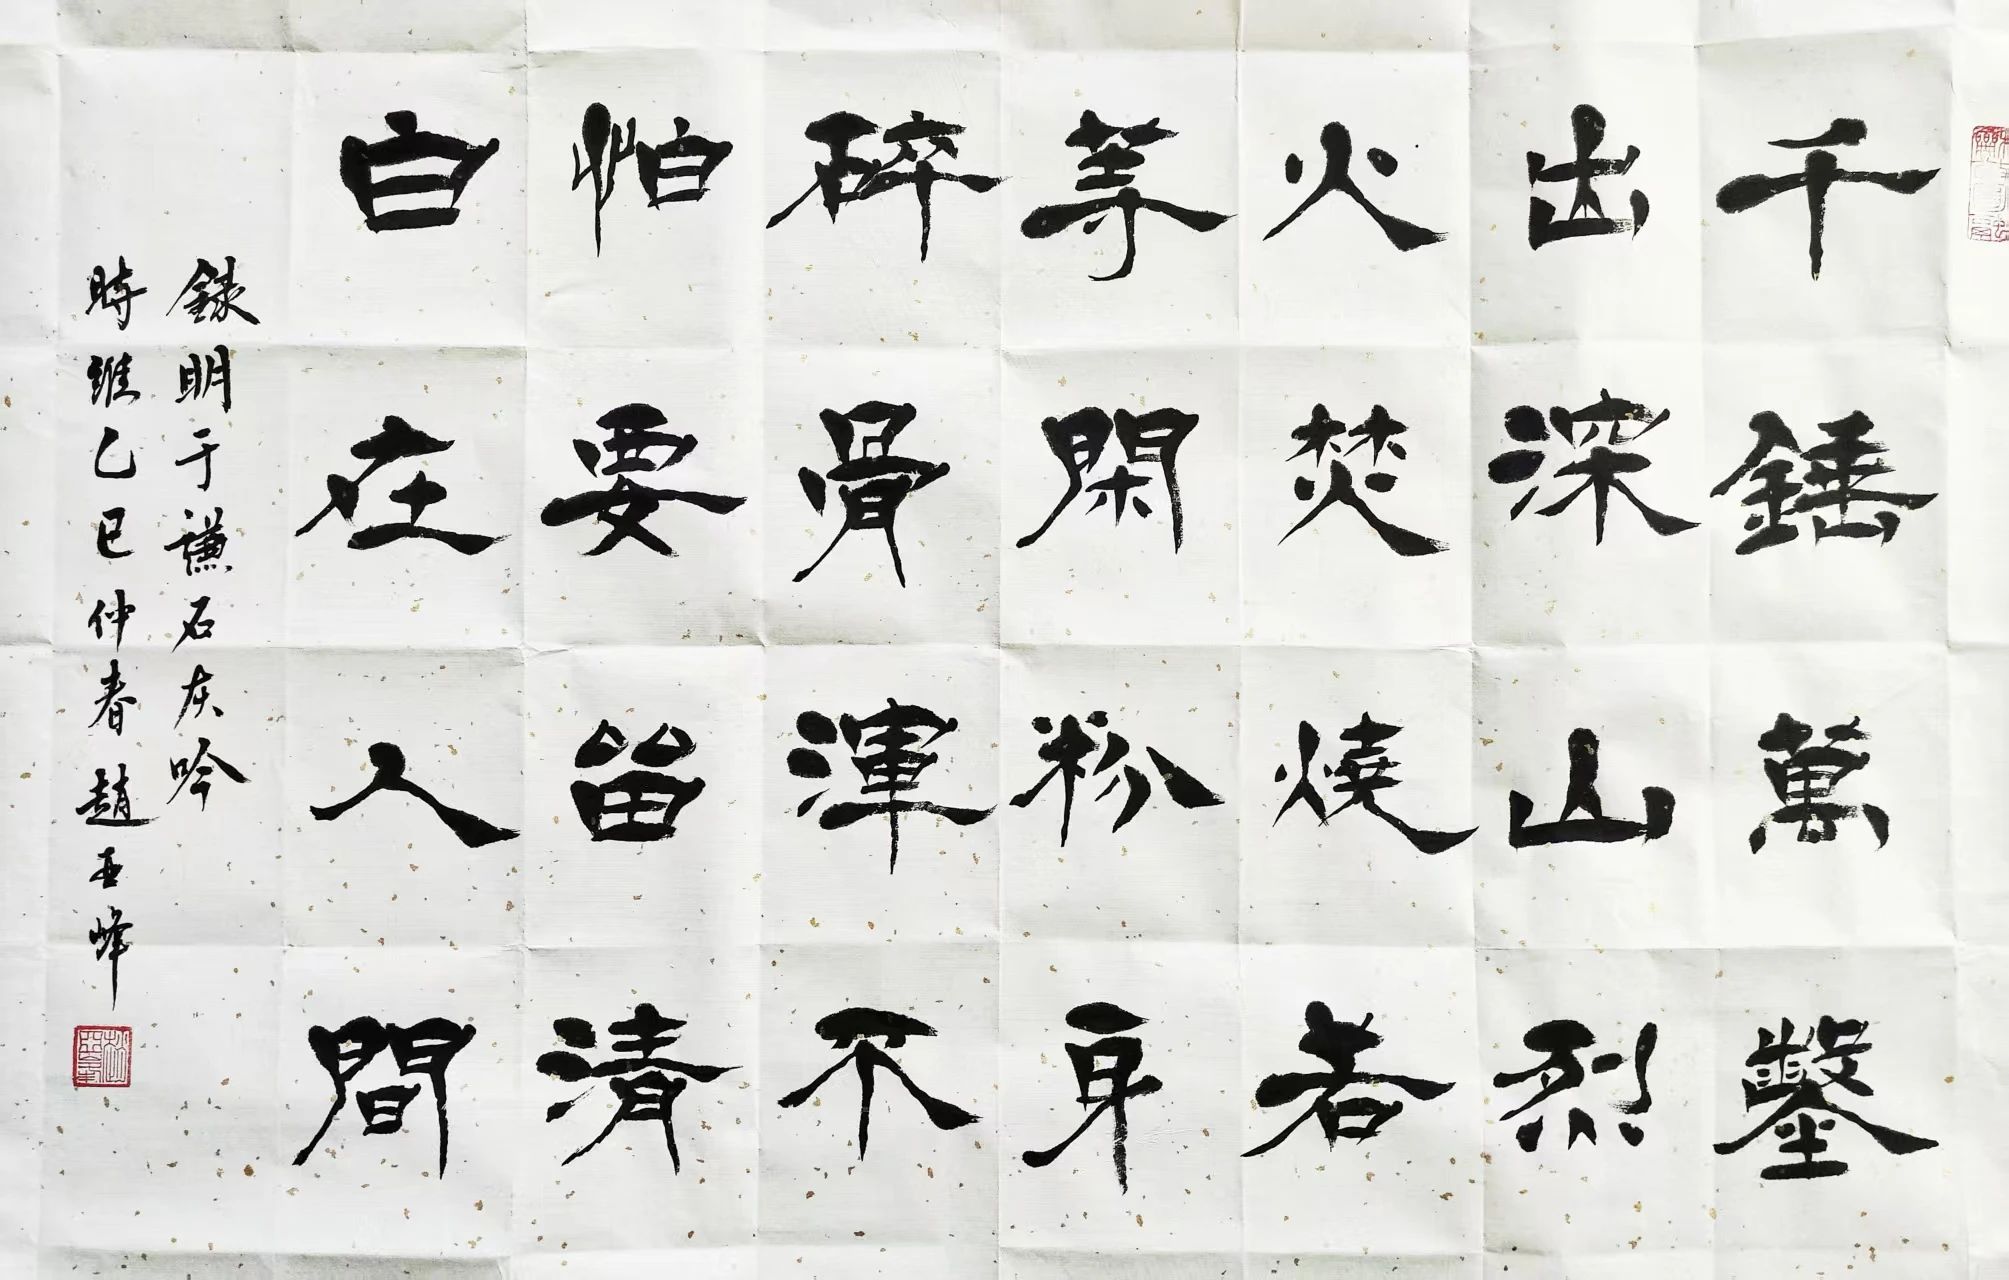 千錘萬鑿
出深山烈
火焚燒若
等閑粉身
碎骨渾不
怕要留清
白在人間
錄明于謙石灰吟
時維乙巳仲春趙亚峰